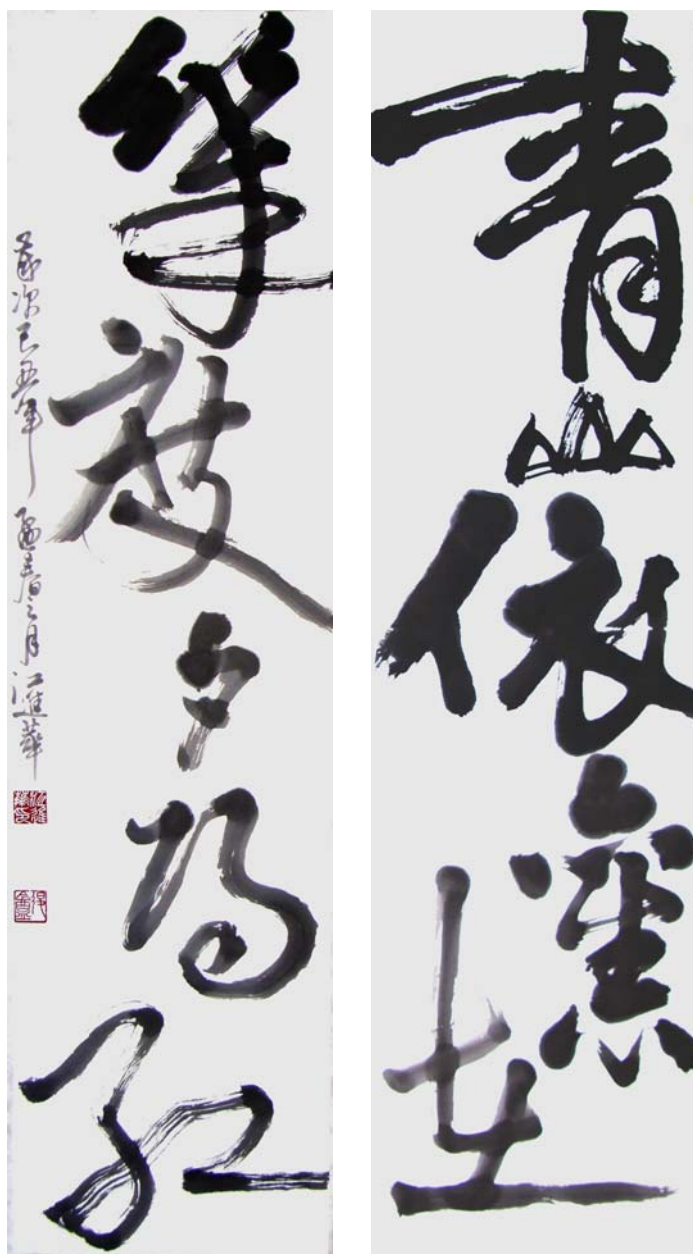 青山依舊在
幾度夕陽紅
歲次己丑年 孟春之月 江進華